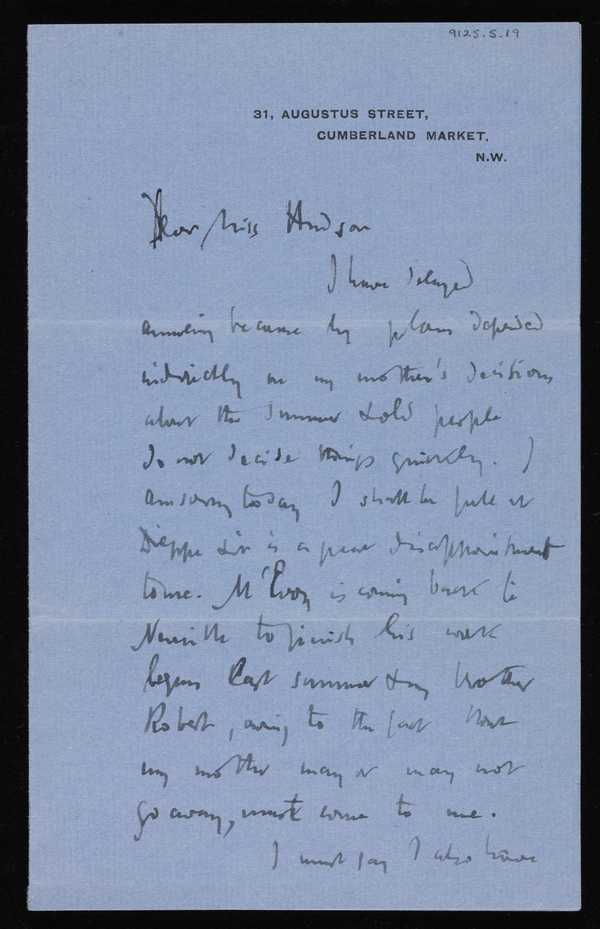 9125.5.19
31, AUGUSTUS STREET,
CUMBERLAND MARKET,
N.W.
Dear Miss Hudson
I have delayed
because my plans depended
indirectly on my mother's decisions
about the summer & old people
do not decide things quickly. I
am sorry to say I shall be
Dieppe & it is a great disappointment
to me. M'Evoy is coming back to
Neuville to finish his work
begun last summer & my brother
Robert, owing to the fact that
my mother may or may not
go away, must come to me.
I must say I also have